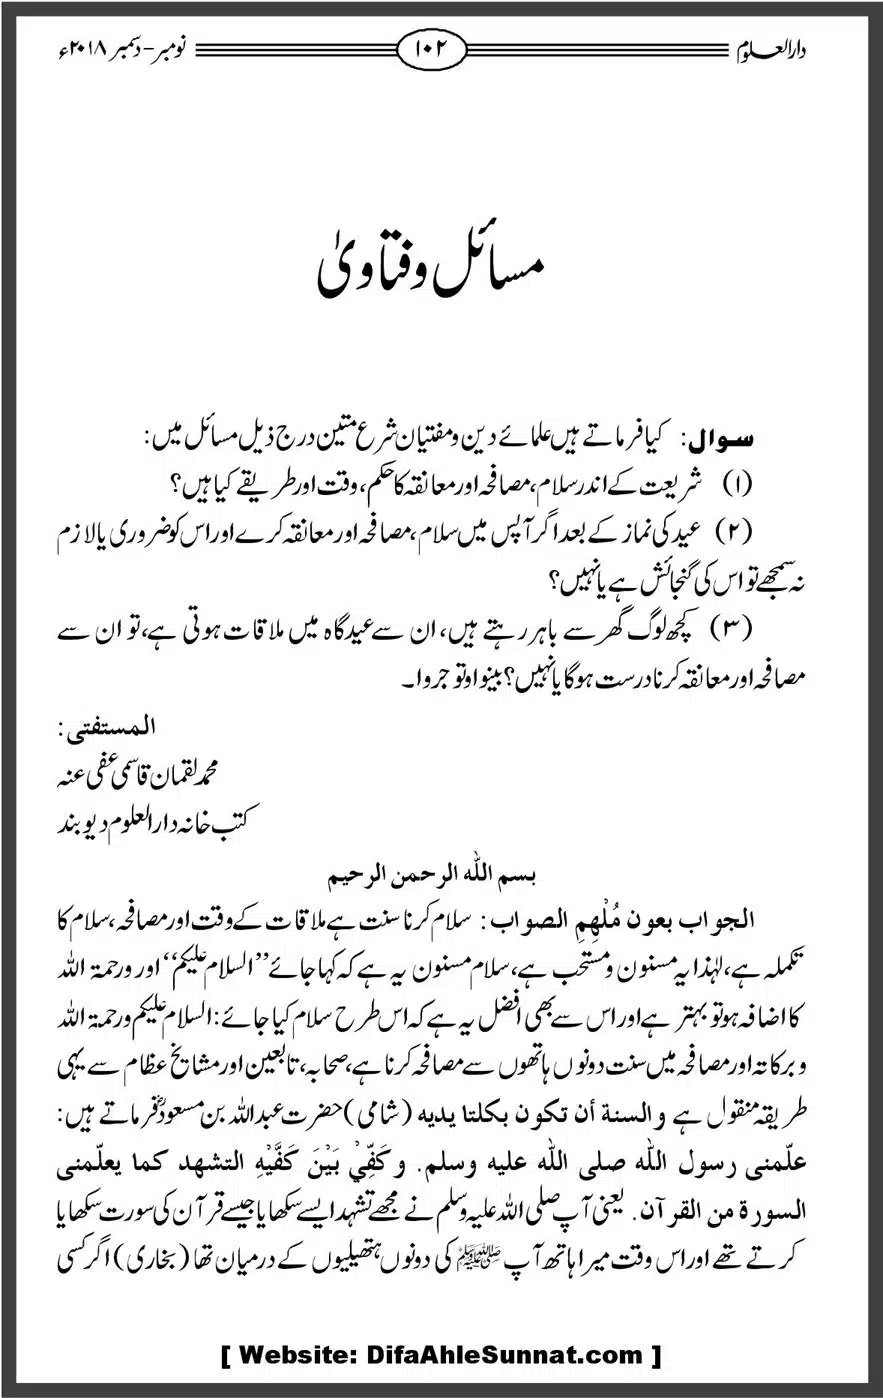 دارالعلوم ۱۰۲ نومبر-دسمبر ۲۰۱۸ء
مسائل وفتاویٰ
سوال: کیا فرماتے ہیں علمائے دین ومفتیان شرع متین درج ذیل مسائل میں:
(۱) شریعت کے اندر سلام، مصافحہ اور معانقہ کا حکم، وقت اور طریقے کیا ہیں؟
(۲) عید کی نماز کے بعد اگر آپس میں سلام، مصافحہ اور معانقہ کرے اور اس کو ضروری یا لازم
نہ سمجھے تو اس کی گنجائش ہے یا نہیں؟
(۳) کچھ لوگ گھر سے باہر رہتے ہیں، ان سے عیدگاہ میں ملاقات ہوتی ہے، تو ان سے
مصافحہ اور معانقہ کرنا درست ہوگا یا نہیں؟ بینوا وتوجروا۔
المستفتی:
محمد لقمان قاسمی عفی عنہ
کتب خانہ دارالعلوم دیوبند
بسم الله الرحمن الرحيم
الجواب بعون مُلْهِمِ الصواب: سلام کرنا سنت ہے ملاقات کے وقت اور مصافحہ، سلام کا
تکملہ ہے، لہٰذا یہ مسنون ومستحب ہے، سلام مسنون یہ ہے کہ کہا جائے ’’السلام علیکم‘‘ اور ورحمۃ اللہ
کا اضافہ ہو تو بہتر ہے اور اس سے بھی افضل یہ ہے کہ اس طرح سلام کیا جائے: السلام علیکم ورحمۃ اللہ
وبرکاتہ اور مصافحہ میں سنت دونوں ہاتھوں سے مصافحہ کرنا ہے، صحابہ، تابعین اور مشایخ عظام سے یہی
طریقہ منقول ہے والسنة أن تكون بكلتا يديه (شامی) حضرت عبداللہ بن مسعودؓ فرماتے ہیں:
علّمنى رسول الله صلى الله عليه وسلم. وكَفِّيْ بَيْنَ كَفَّيْهِ التشهد كما يعلّمنى
السورة من القرآن. یعنی آپ صلی اللہ علیہ وسلم نے مجھے تشہد ایسے سکھایا جیسے قرآن کی سورت سکھایا
کرتے تھے اور اس وقت میرا ہاتھ آپ ﷺ کی دونوں ہتھیلیوں کے درمیان تھا (بخاری) اگر کسی
[ Website: DifaAhleSunnat.com ]